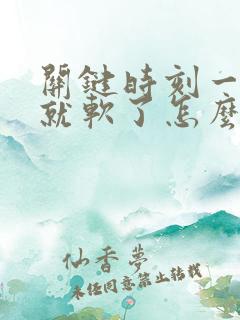 關鍵時刻一
就軟了怎麼
仙香夢
未經同意禁止轉載